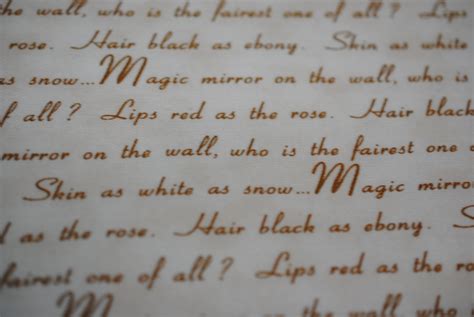 the wall, who is the fairest one of all ? Lips
rose. Hair black as ebony. Skin as white
as snow...Magic mirror on the wall, who is
of all ? Lips red as the rose. Hair black
mirror on the wall, who is the fairest one
Skin as white as snow...Magic mirror
as the rose. Hair black as ebony.
fairest one of all ? Lips red as the ro
M mirror on the wall, who